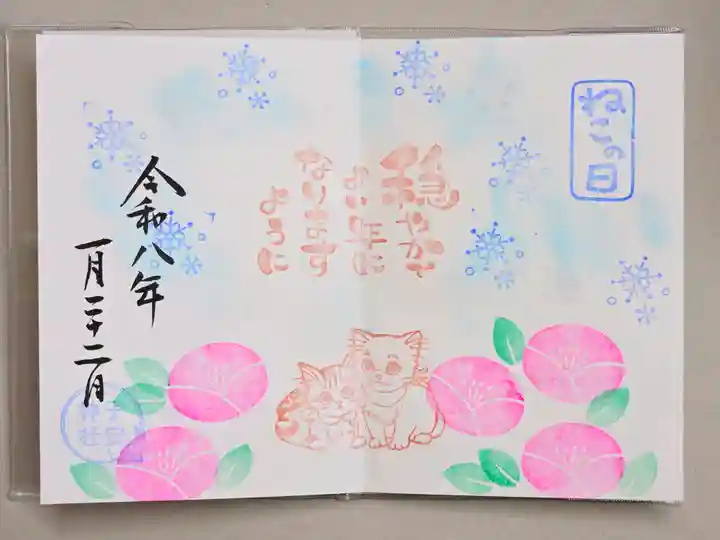 ねこの日
穏やかで
よい年に
なります
ように
令和八年
一月二十二日
神社